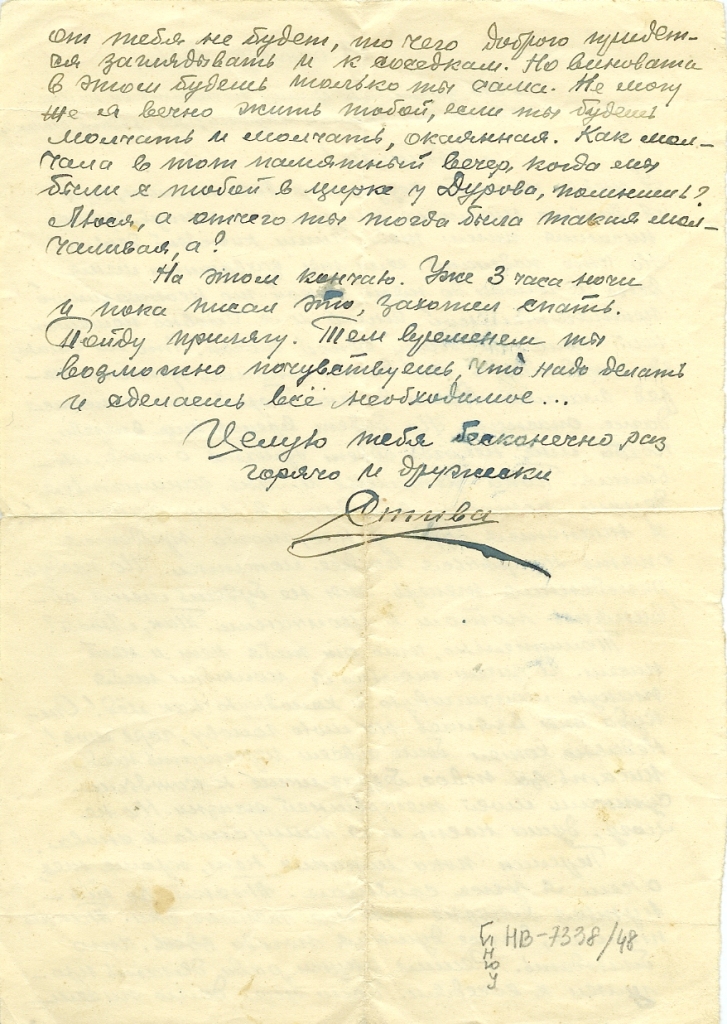 от тебя не будет, то чего доброго придет-
ся заглядывать и к соседкам. Но виновата
в этом будешь только ты сама. Не могу
же я вечно жить тобой, если ты будешь
молчать и молчать, окаянная. Как мол-
чала в тот памятный вечер, когда мы
были с тобой в цирке у Дурова, помнишь?
Люся, а отчего ты тогда была такая мол-
чаливая, а?
На этом кончаю. Уже 3 часа ночи
и пока писал это, захотел спать.
Пойду прилягу. Тем временем ты
возможно почувствуешь, что надо делать
и сделаешь всё необходимое...
Целую тебя бесконечно раз
горячо и дружески
Стива
НВ-7338/48